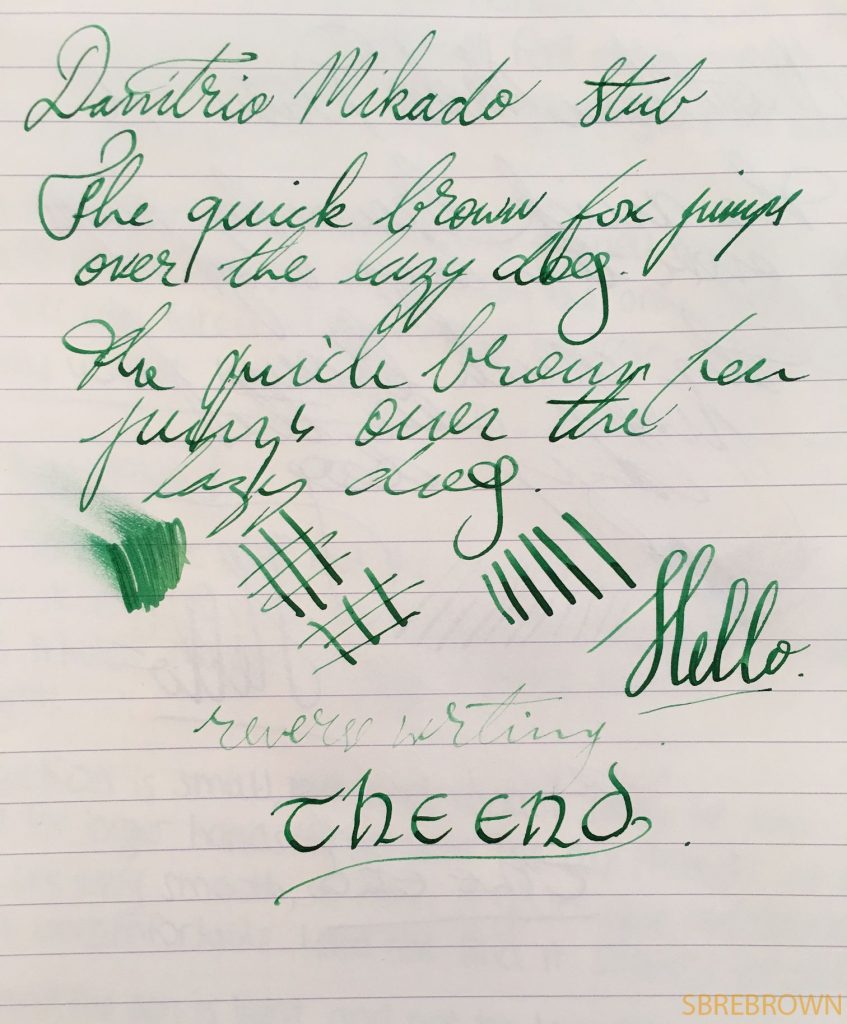 Danitrio Mikado Stub
The quick brown fox jumps
over the lazy dog.
The quick brown fox
jumps over the
lazy dog.
Hello.
reverse writing.
The End.
SBREBROWN